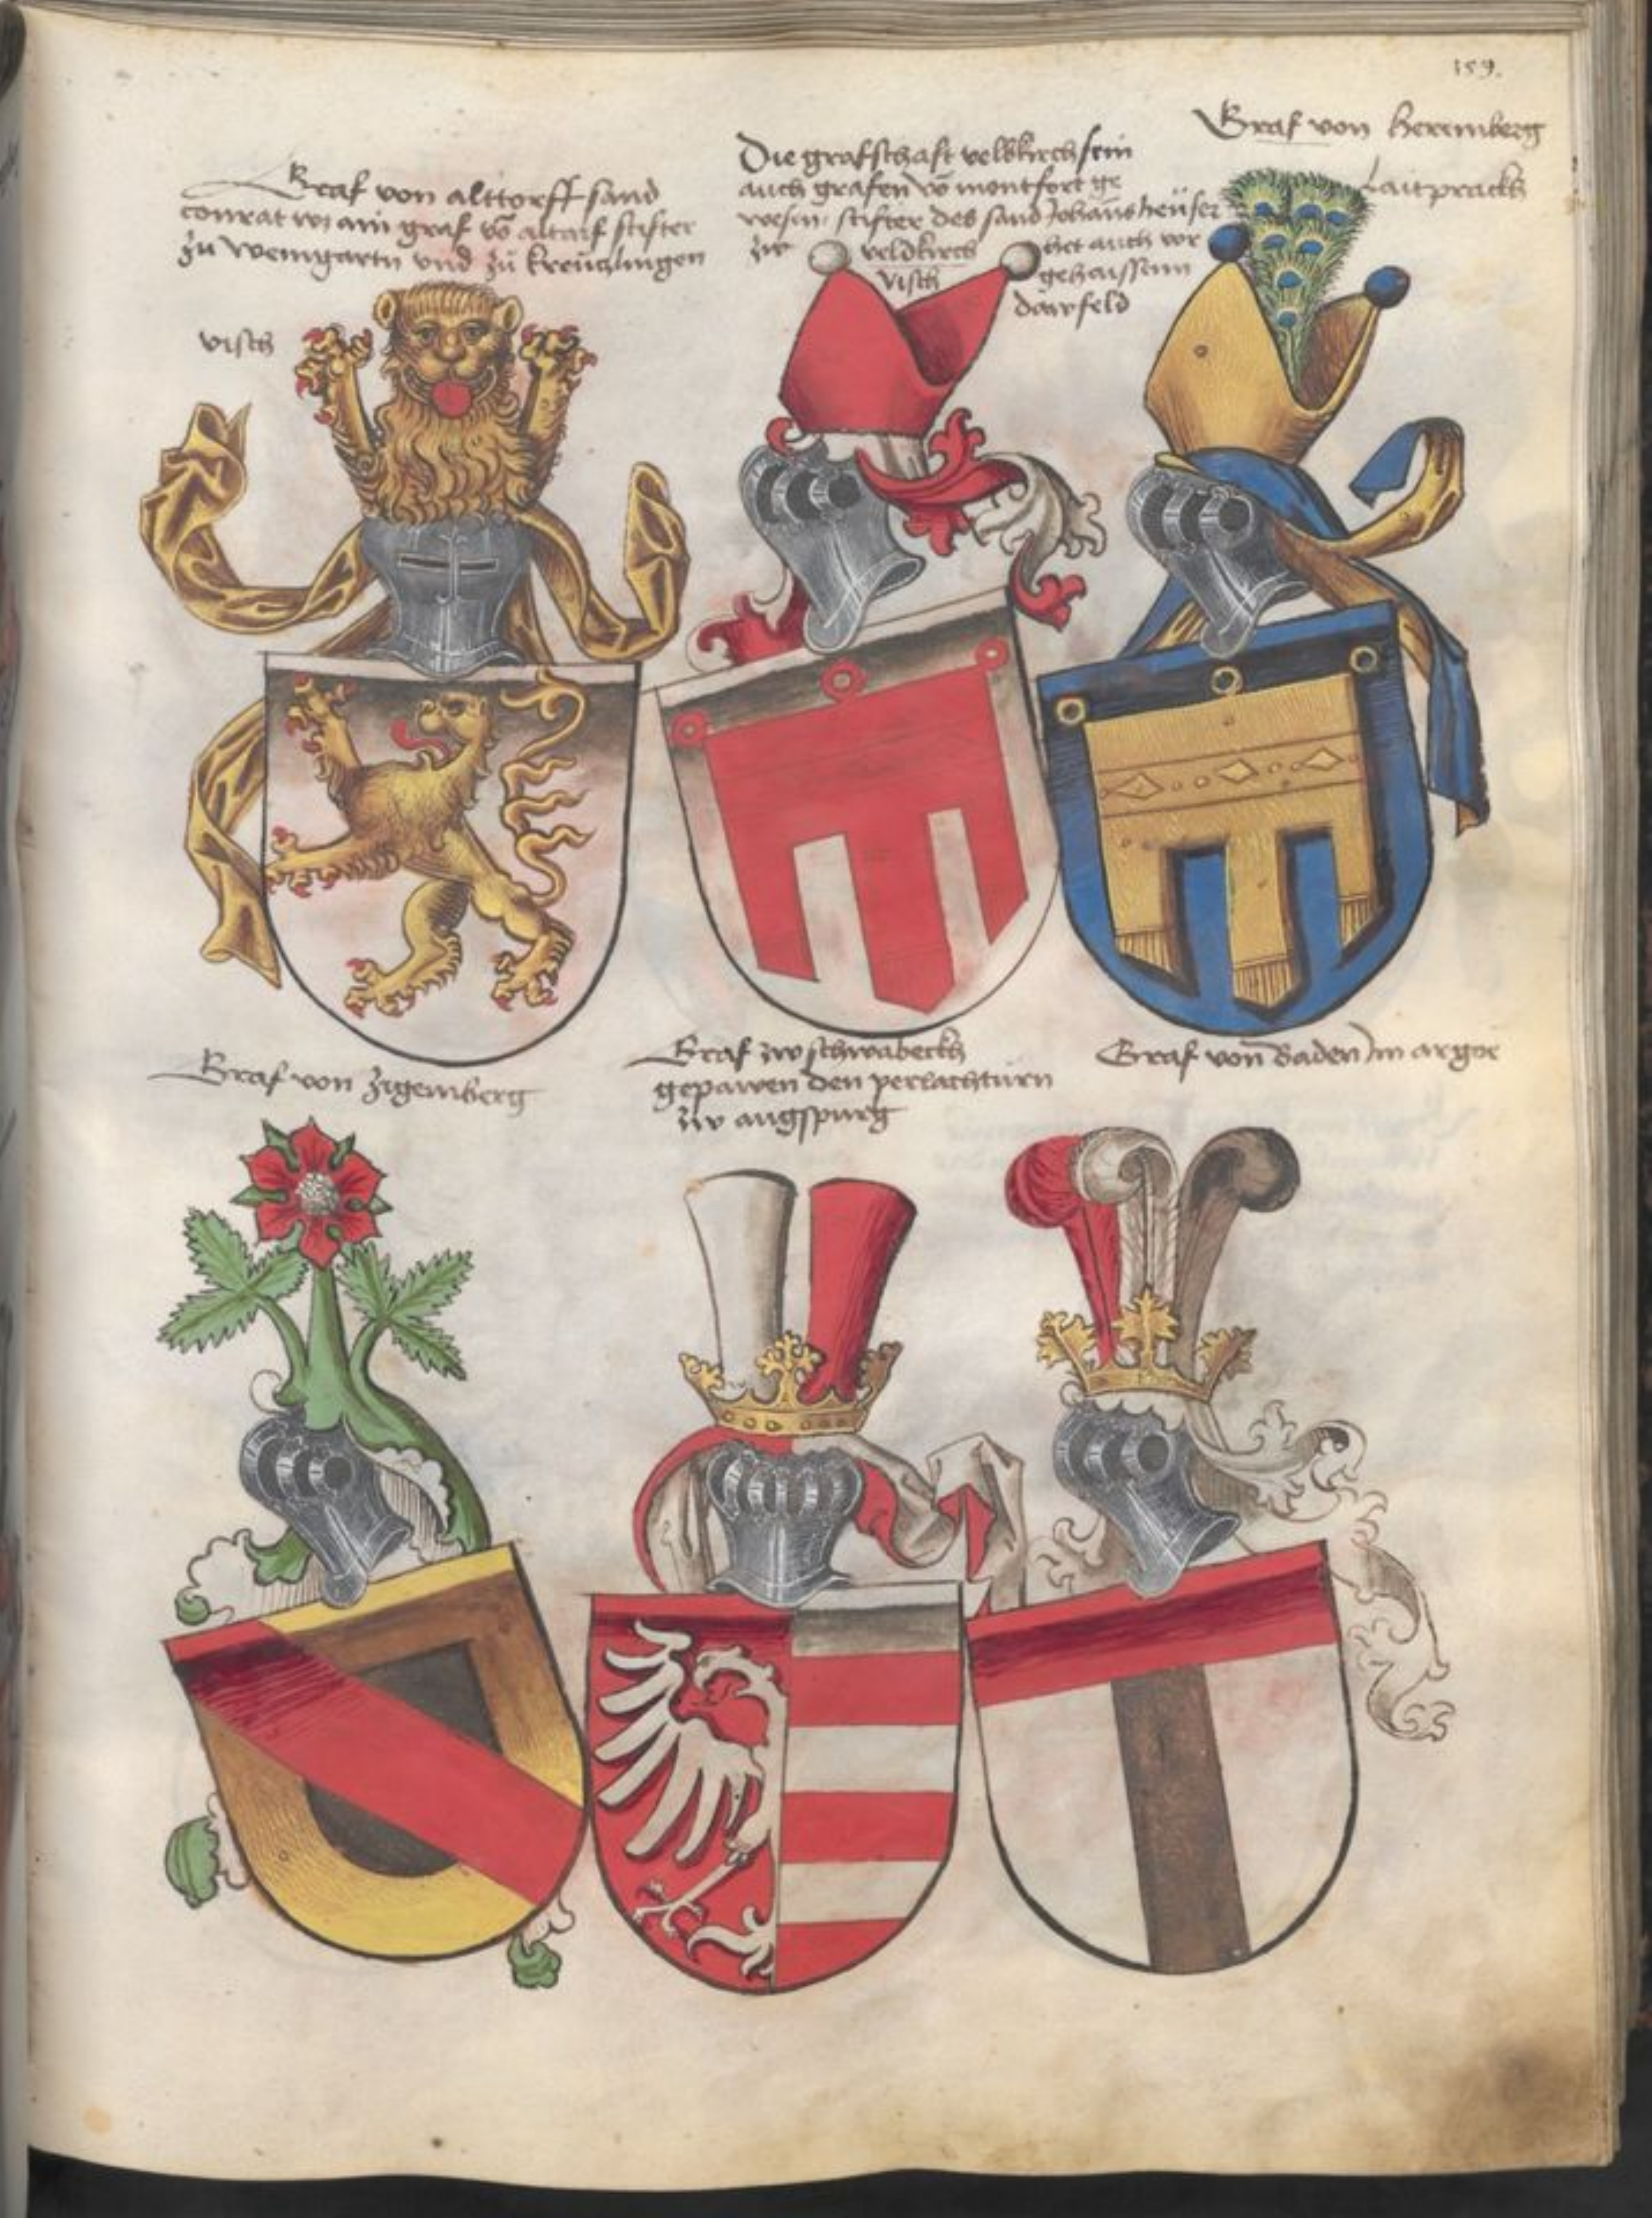 159.
Graf von alttorff sand
conrat wz ain graf vō altarf stifter
zu weingartn vnd zů kreuczlingen
visch
Die grafschaft veldkirch sein
auch grafen vō montfort ge
wesin stifter des sand Johans heuser
zw veldkirch
het auch vor
visch
gehaissenn
Graf von heremberg
Laitprackh
Graf von zigemberg
Graf zw schwabeckh
gepawen den perlachturn
zw augspurg
Graf von Baden im argoe